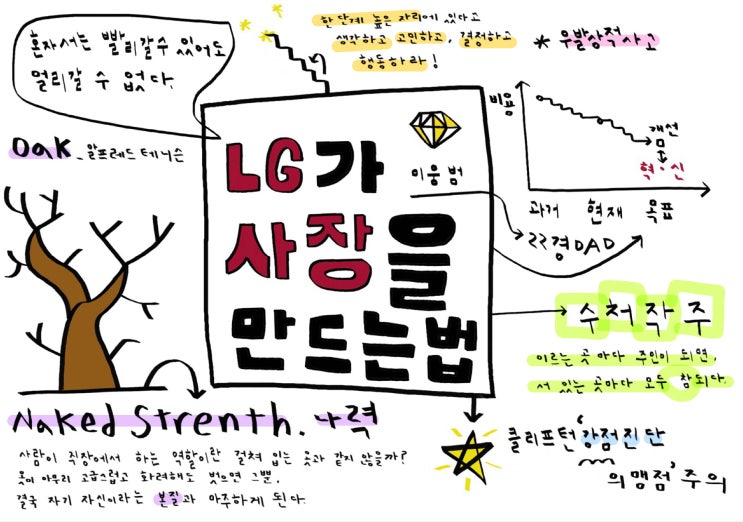 혼자서는 빨리갈수 있어도
멀리갈 수 없다.
한 단계 높은 자리에 있다고
생각하고 고민하고, 결정하고
행동하라!
* 우발상적사고
Oak _알프레드 테니슨
LG가
사장을
만드는법
이웅범
비용
개선
혁·신
과거 현재 목표
로경DAD
수처작주
이르는 곳마다 주인이 되면,
서 있는곳마다 모두 참되다.
Naked Strenth. 나력
사람이 직장에서 하는 역할이란 걸쳐 입는 옷과 같지 않을까?
옷이 아무리 고급스럽고 화려해도 벗으면 그뿐.
결국 자기 자신이라는 본질과 마주하게 된다.
클리프턴 '강점진단
의맹점' 주의